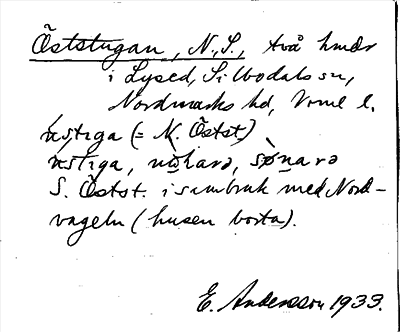 Öststugan, N., S., två hmdr
i Lysed, Silbodals sn,
Nordmarks hd, Vrml l.
ɯstıga (= N. Östst.)
ɯstıga, nòkarə, sø̀narə
S. Östst. i sambruk med Nord-
vageln (husen borta).
E. Andersson 1933.